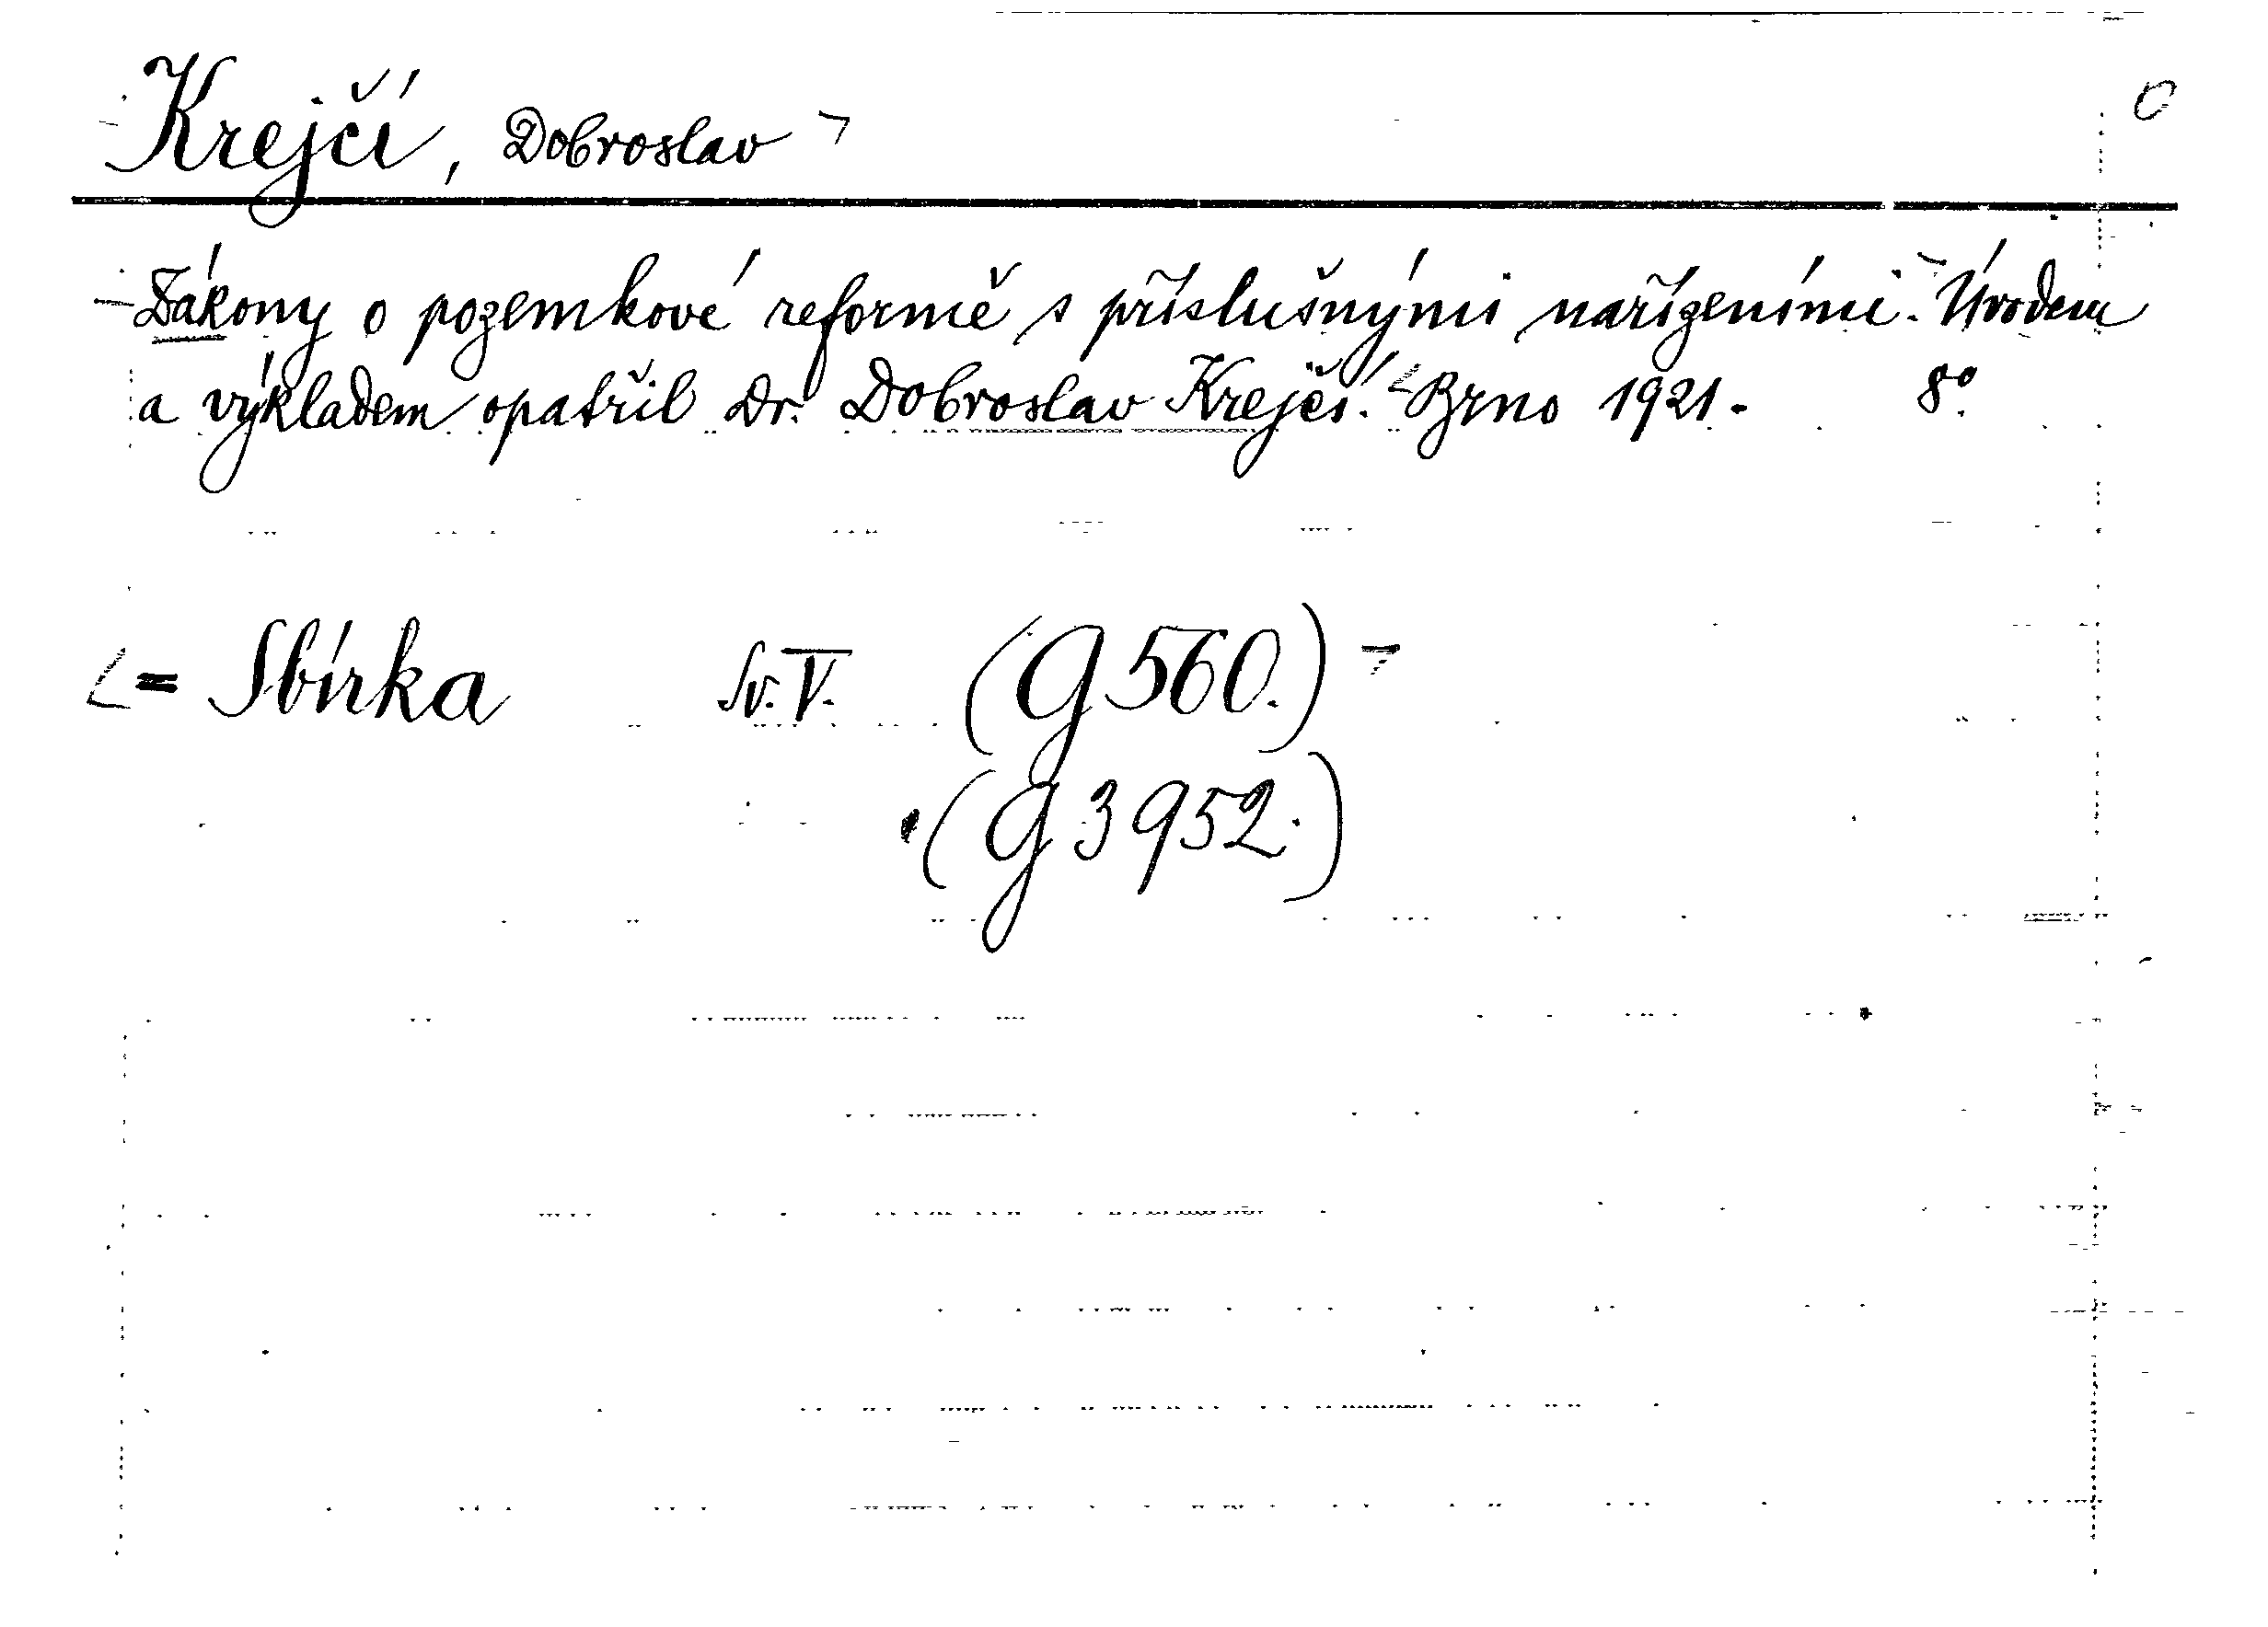 Krejčí, Dobroslav
Zákony o pozemkové reformě s příslušnými nařízeními. Úvodem
a výkladem opatřil Dr. Dobroslav Krejčí. Brno 1921. 8°.
= Sbírka Sv. V. (G 560.)
(G 3952.)